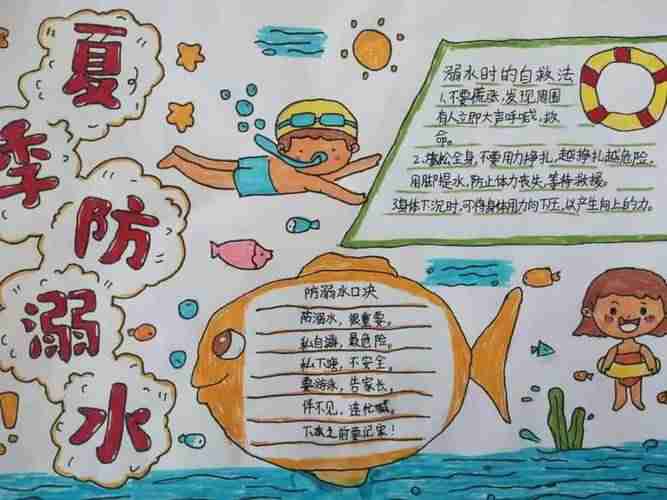 夏
季
防
溺
水
!
溺水时的自救法
1.不要慌张,发现周围
有人立即大声呼喊,救
命。
2.放松全身,不要用力挣扎,越挣扎越危险,
用脚踢水,防止体力丧失,等待救援。
3.身体下沉时,可将身体用力向下压,以产生向上的力。
防溺水口决
防溺水,很重要。
私自游,最危险。
私下塘,不安全。
要游泳,告家长。
伴不见,连忙喊。
下水之前要记牢!